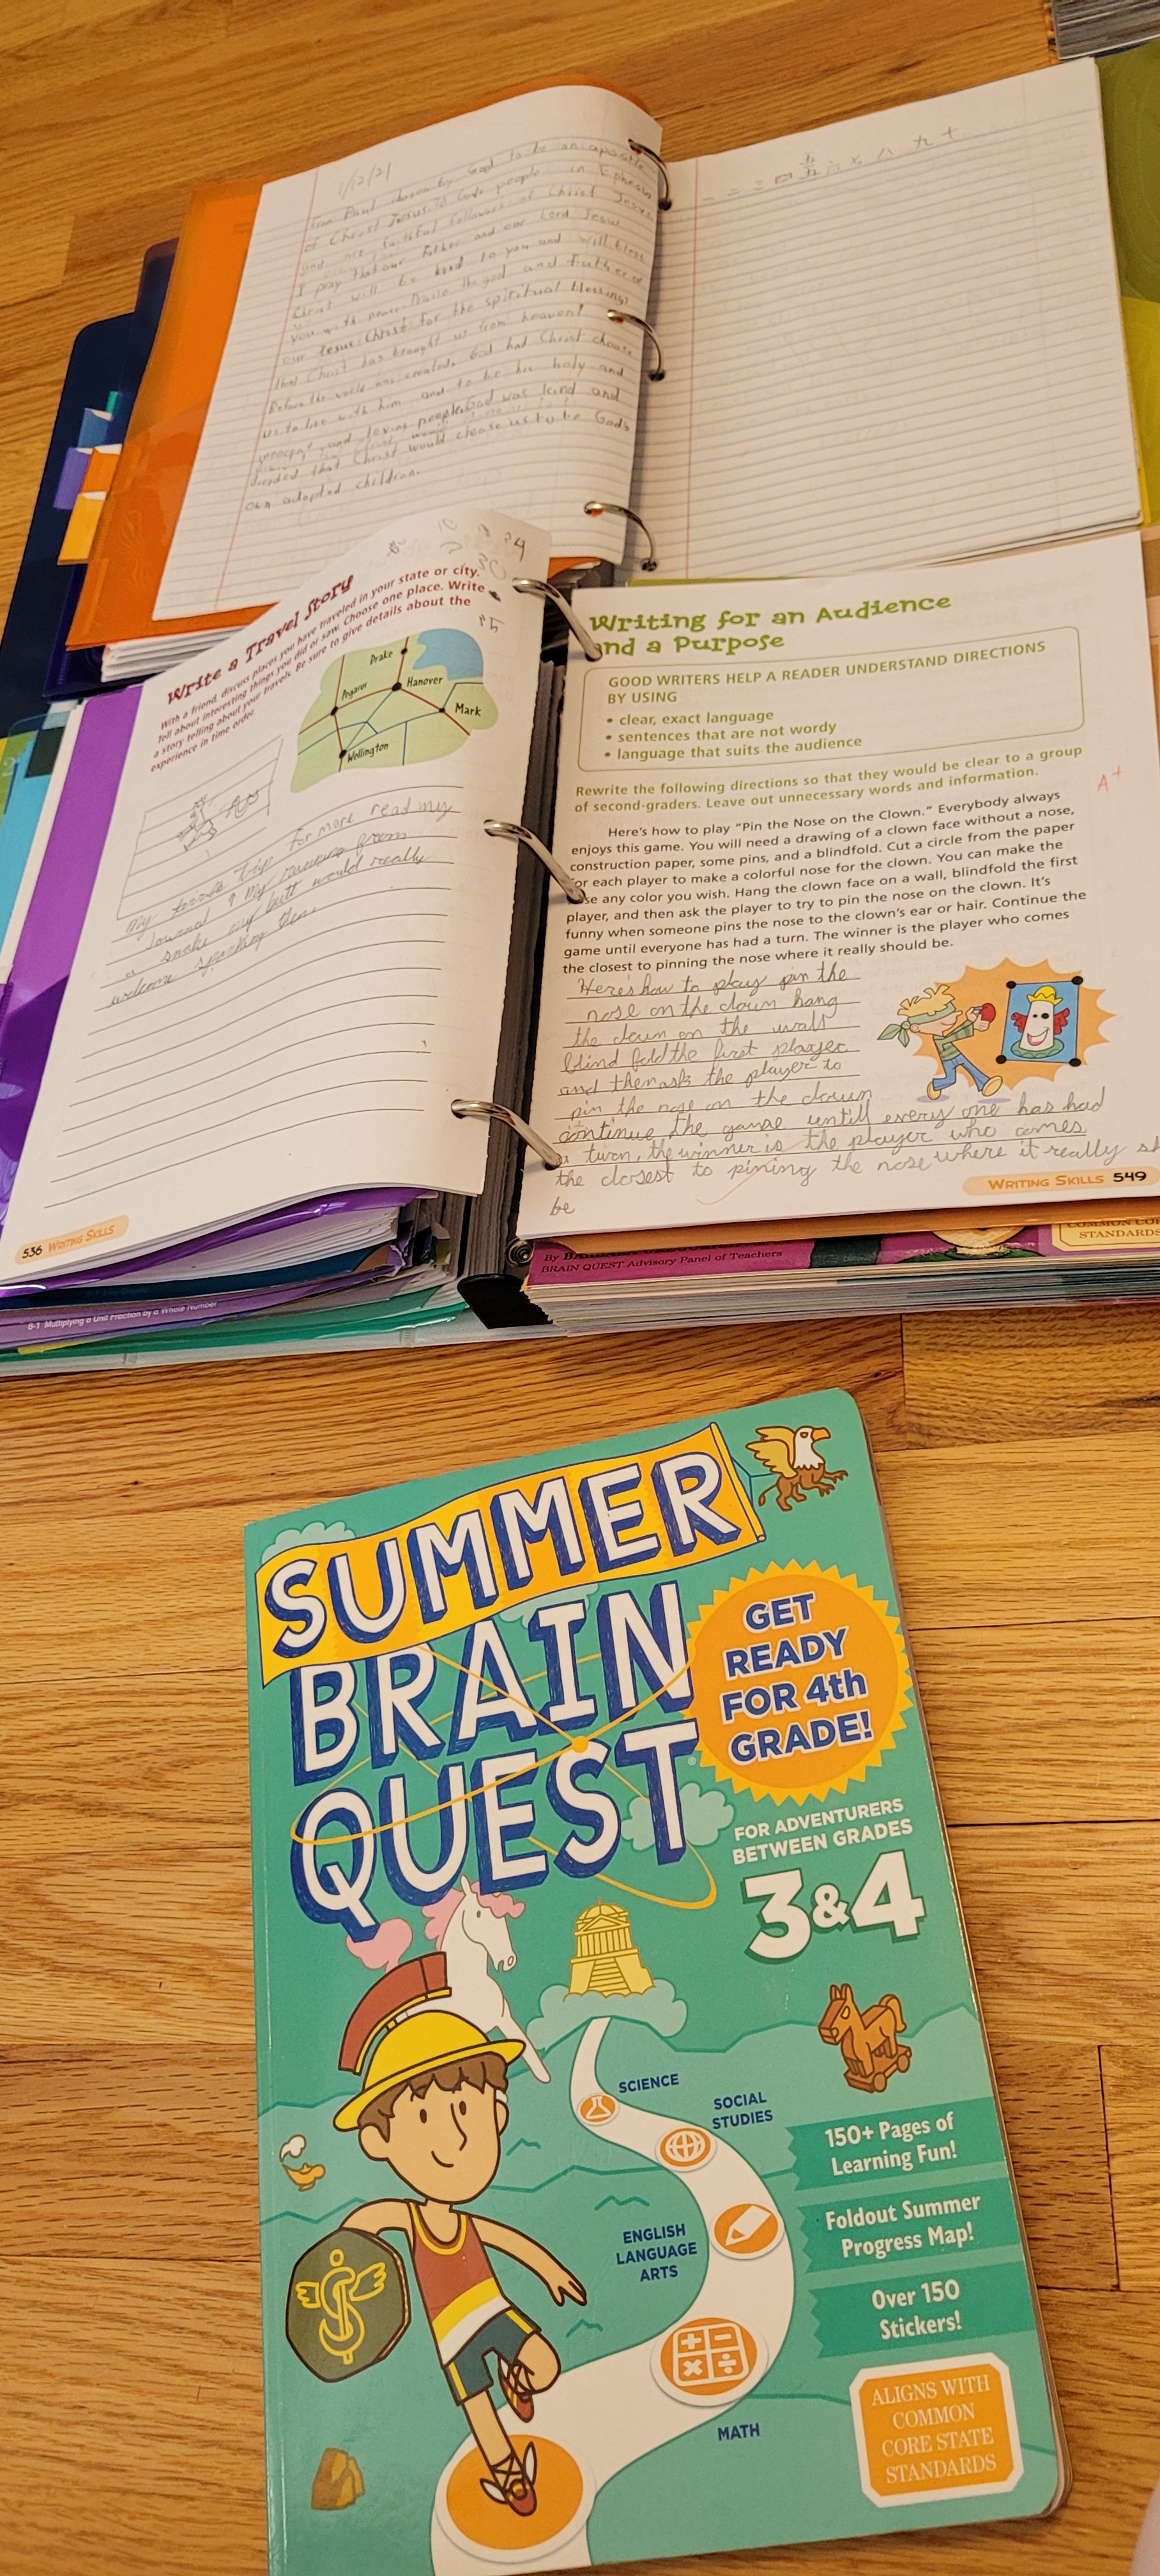 1/12/21
from Paul chosen by God to be an apostle
of Christ Jesus. To God's people in Ephesus
and are faithful followers of Christ Jesus.
I pray that our Father and our Lord Jesus
Christ will be kind to you and will bless
you with peace. Praise the god and Father of
our Jesus Christ for the spiritual blessings
that Christ has brought us from heaven!
Before the world was created, God had Christ choose
us to live with him and to be his holy and
and loving people. God was kind and
decided that Christ would choose us to be God's
own adopted children.
一 二 三 四 五 六 七 八 九 十
五
Write a Travel Story
With a friend, discuss places you have traveled in your state or city.
Tell about interesting things you did or saw. Choose one place. Write
a story telling about your travels. Be sure to give details about the
experience in time order.
Drake
Hanover
Mark
Wellington
my trip for more read my
journal my running from
a snake my butt would really
welcome spanking then.
536 WRITING SKILLS
Writing for an Audience
and a Purpose
GOOD WRITERS HELP A READER UNDERSTAND DIRECTIONS
BY USING
• clear, exact language
• sentences that are not wordy
• language that suits the audience
Rewrite the following directions so that they would be clear to a group
of second-graders. Leave out unnecessary words and information.
A+
Here's how to play "Pin the Nose on the Clown." Everybody always
enjoys this game. You will need a drawing of a clown face without a nose,
construction paper, some pins, and a blindfold. Cut a circle from the paper
for each player to make a colorful nose for the clown. You can make the
nose any color you wish. Hang the clown face on a wall, blindfold the first
player, and then ask the player to try to pin the nose on the clown. It's
funny when someone pins the nose to the clown's ear or hair. Continue the
game until everyone has had a turn. The winner is the player who comes
the closest to pinning the nose where it really should be.
Here's how to play pin the
nose on the clown hang
the clown on the wall
blind fold the first player
and then ask the player to
pin the nose on the clown
continue the game untill every one has had
a turn, the winner is the player who comes
the closest to pining the nose where it really sh
be
WRITING SKILLS 549
By
BRAIN QUEST Advisory Panel of Teachers
COMMON CO
STANDARDS
8-1 Multiplying a Unit Fraction by a Whole Number
SUMMER
BRAIN
QUEST
GET
READY
FOR 4th
GRADE!
FOR ADVENTURERS
BETWEEN GRADES
3&4
SCIENCE
SOCIAL
STUDIES
ENGLISH
LANGUAGE
ARTS
MATH
150+ Pages of
Learning Fun!
Foldout Summer
Progress Map!
Over 150
Stickers!
ALIGNS WITH
COMMON
CORE STATE
STANDARDS